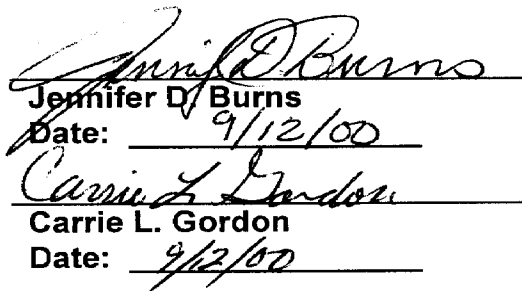 Jennifer D Burns
Jennifer D. Burns
Date: 9/12/00
Carrie L Gordon
Carrie L. Gordon
Date: 9/12/00